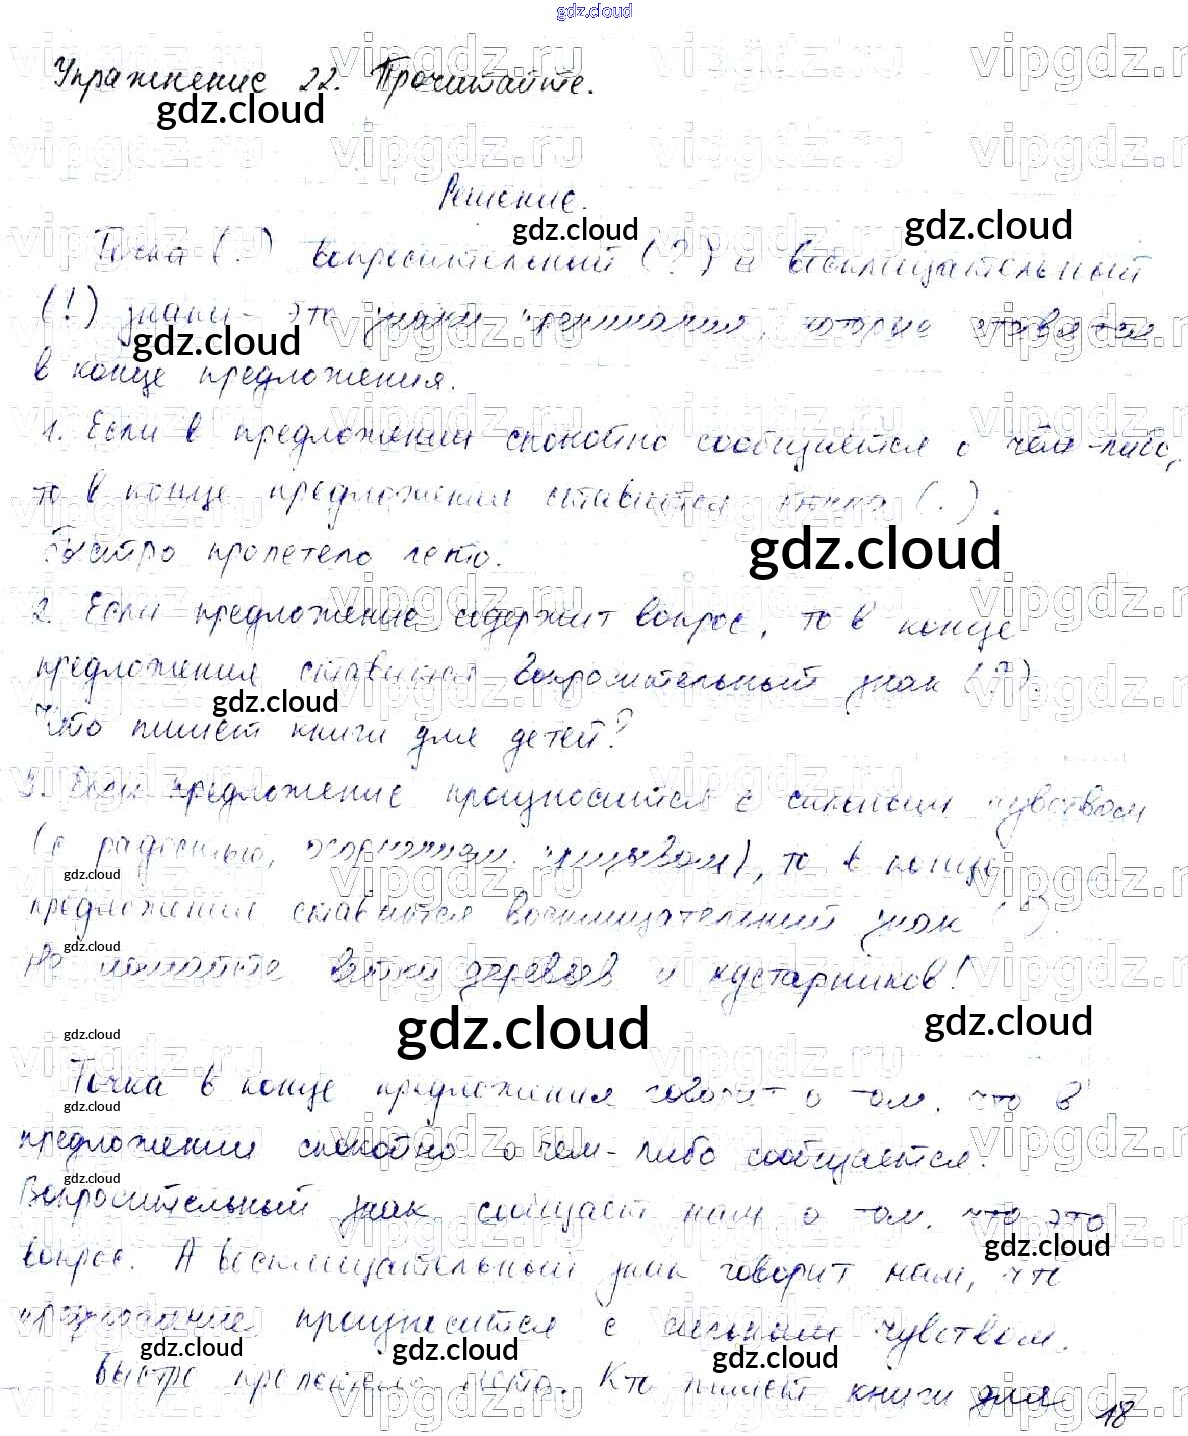 gdz.cloud
Упражнение 22. Прочитайте.
Решение.
Точка (.) вопросительный (?) и восклицательный
(!) знаки - это знаки препинания, которые ставятся
в конце предложения.
1. Если в предложении спокойно сообщается о чём-либо,
то в конце предложения ставится точка (.).
Быстро пролетело лето.
2. Если предложение содержит вопрос, то в конце
предложения ставится вопросительный знак (?).
Кто пишет книги для детей?
3. Если предложение произносится с сильным чувством
(с радостью, восторгом, призывом), то в конце
предложения ставится восклицательный знак (!).
Не ломайте ветки деревьев и кустарников!
Точка в конце предложения говорит о том, что в
предложении спокойно о чем-либо сообщается.
Вопросительный знак сообщает нам о том, что это
вопрос. А восклицательный знак говорит нам, что
предложение произносится с сильным чувством.
Быстро пролетело лето. Кто пишет книги для
18